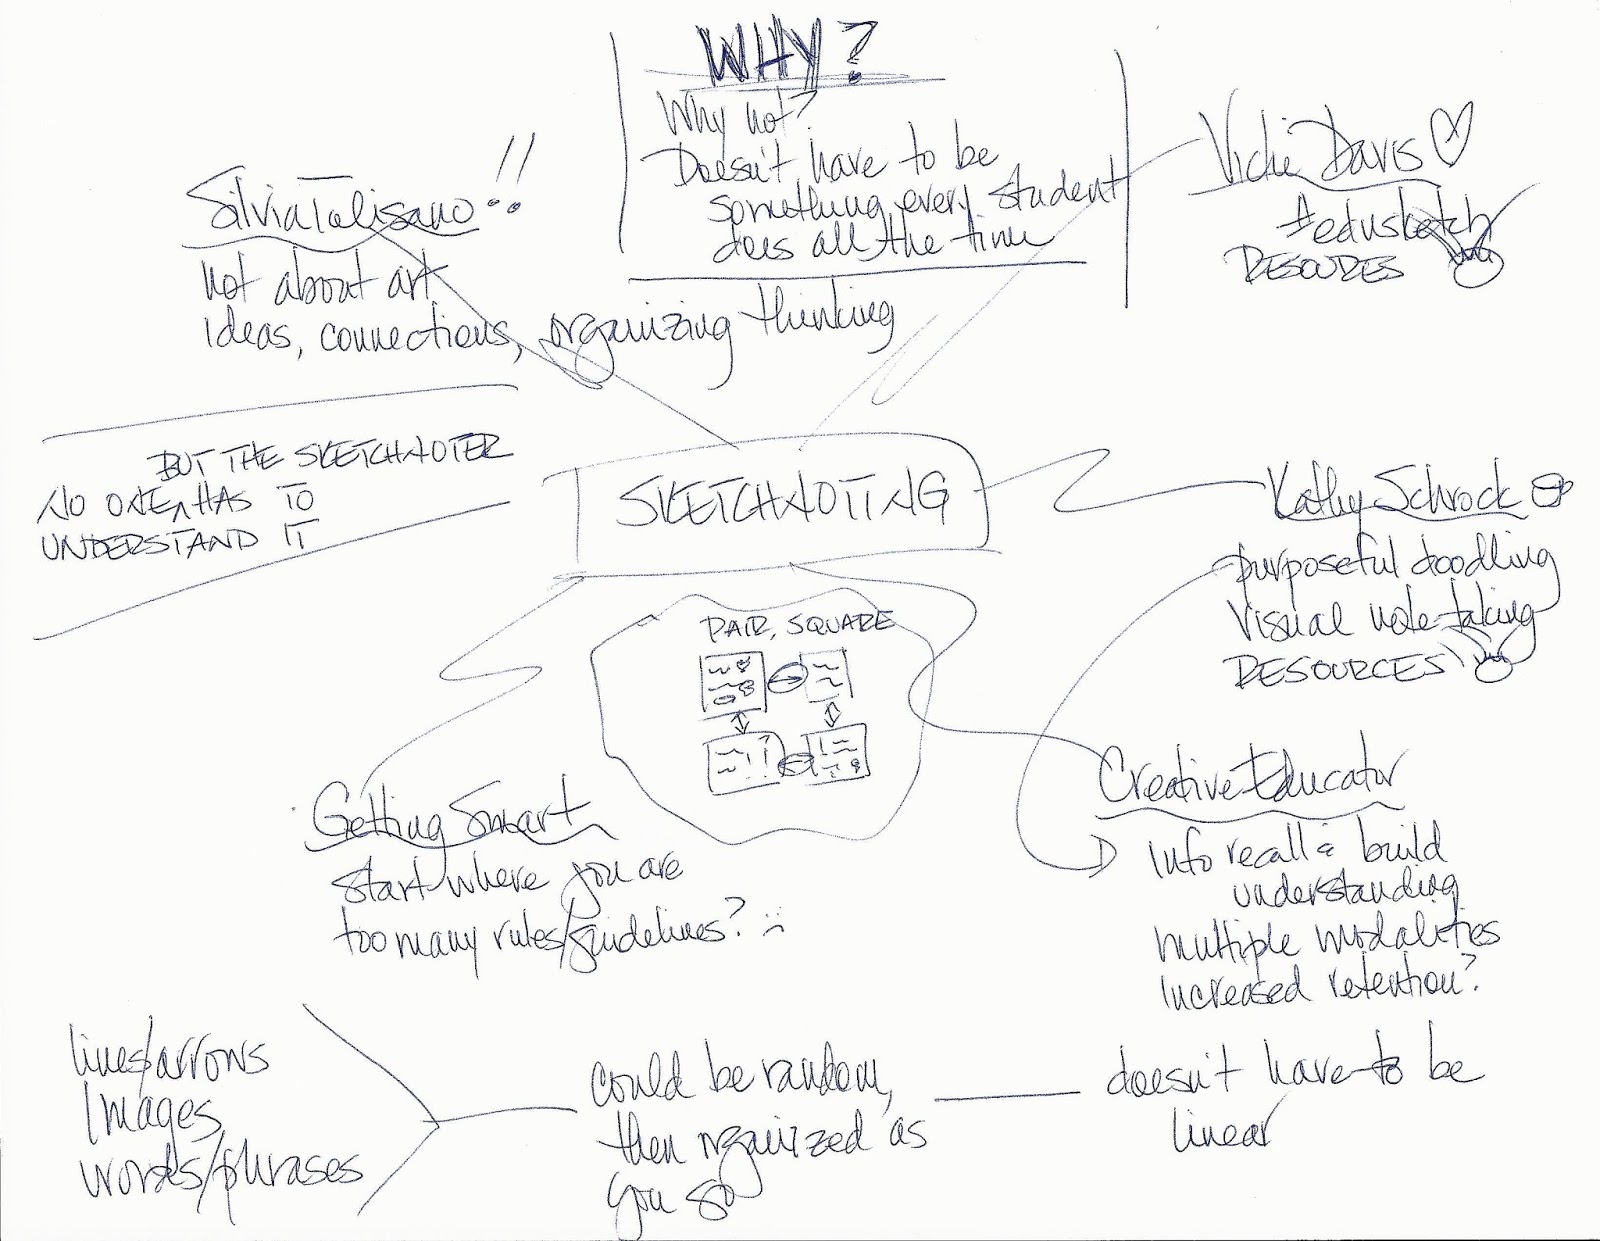 WHY?
Why not?
Doesn't have to be
something every student
does all the time
Silvia Tolisano!!
not about art
ideas, connections, organizing thinking
Vicki Davis
#edusketch
RESOURCES
BUT THE SKETCHNOTER
NO ONE ^ HAS TO
UNDERSTAND IT
SKETCHNOTING
Kathy Schrock
purposeful doodling
visual note-taking
RESOURCES
PAIR, SQUARE
Getting Smart
start where you are
too many rules/guidelines? :(
Creative Educator
info recall & build
understanding
multiple modalities
increased retention?
lines/arrows
Images
words/phrases
could be random,
then organized as
you go
doesn't have to be
linear